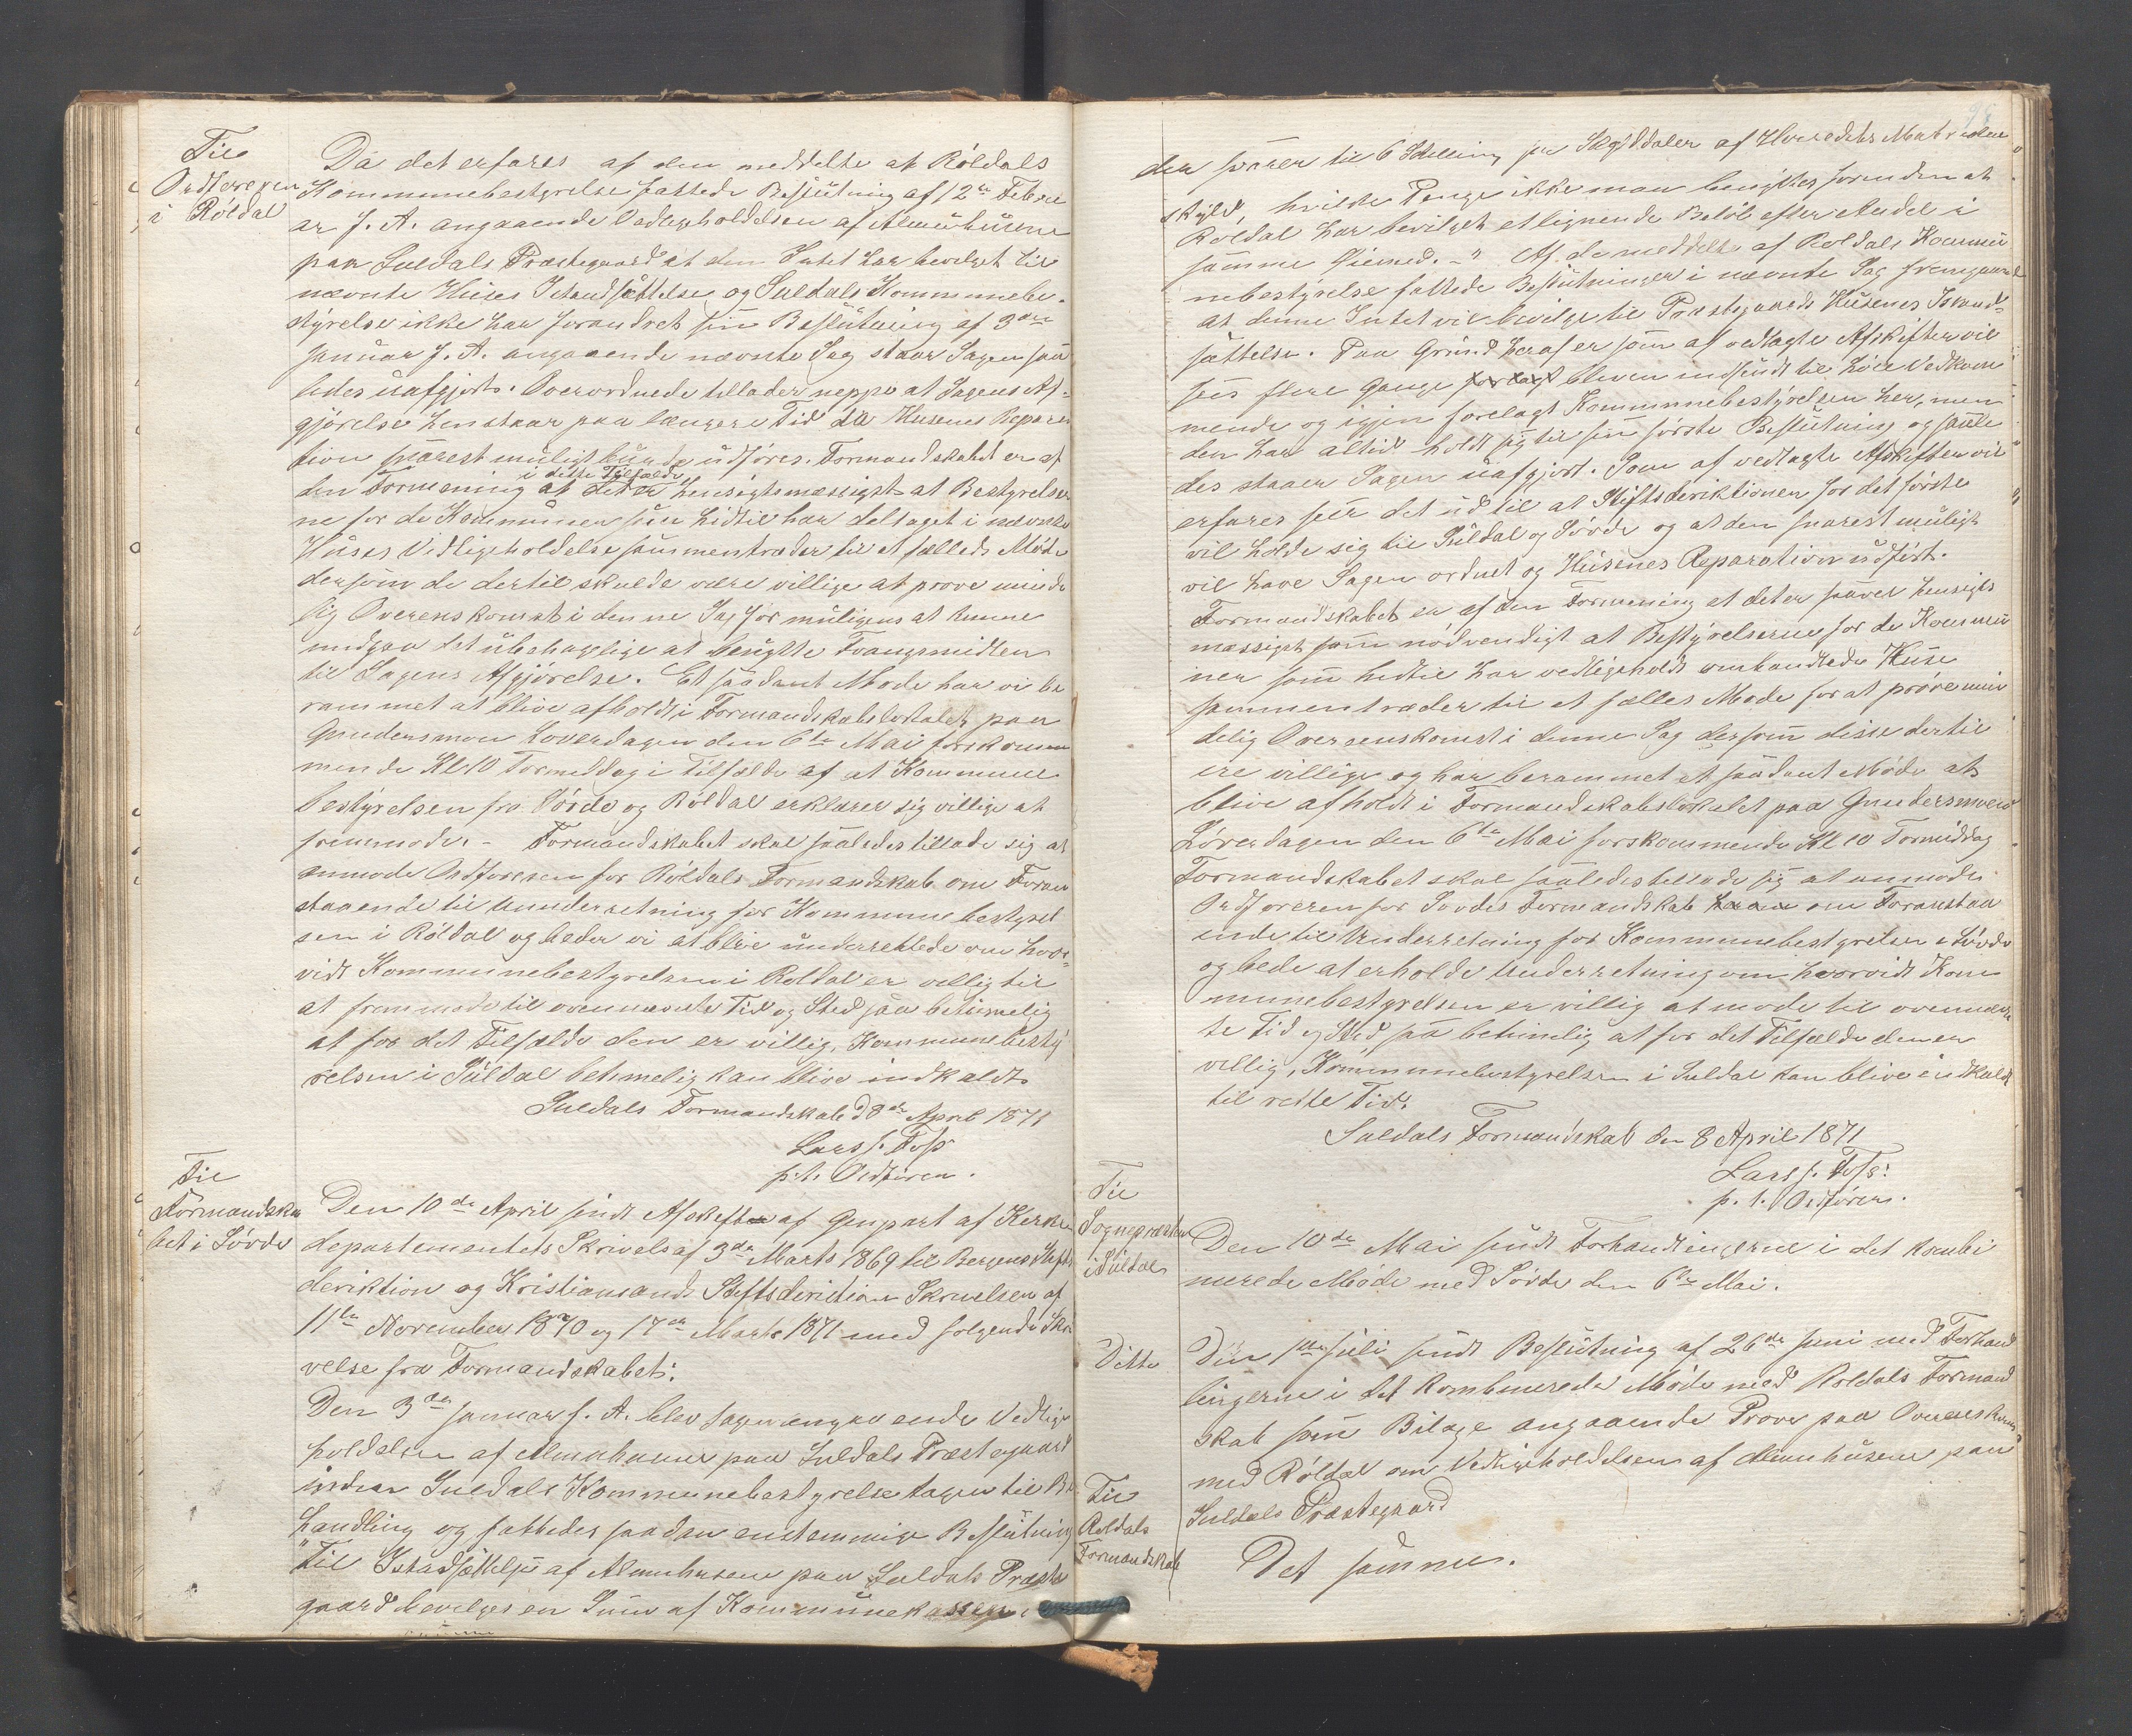 Til
Ordføreren
i Röldal
Da det erfares af den meddelte at Röldals
Kommunebestyrelse fattede Beslutning af 2den Februar
ar f. A. angaaende Vedligeholdelsen af Almuhusene
paa Suldals Præstegaard at den Intet har bevilget til
nævnte Huses Istandsættelse og Suldals Kommunebe-
styrelse ikke har forandret sin Beslutning af 3die
Januar f. A. angaaende nævnte Sag staar Sagen saa
ledes uafgjort. Overordnede tillader neppe at Sagens Af-
gjörelse henstaar paa længere Tid da Husenes Repara
tion snarest muligt burde udföres. Formandskabet er af
i dette Tilfælde
den Formening at det er hensigtsmæssigst at Bestyrelser
ne for de Kommuner som hidtil har deltaget i nævnte
Huses Vedligeholdelse sammentræder til et fælleds Möde
dersom de dertil skulde være villige at prove minde
lig Overenskomst i denne Sag for muligens at kunne
undgaa det ubehagelige at benytte Tvangsmidler
til Sagens Afgjörelse. Et saadant Mode har vi be
rammet at blive afholdt i Formandskabslokalet paa
Gundersmoen Loverdagen den 6te Mai forskomm
mende Kl 10 Formiddag i Tilfælde af at Kommune
bestyrelsen fra Sövde og Röldal erklærer sig villige at
fremmode. - Formandskabet skal saaledes tillade sig at
anmode Ordføreren for Röldals Formandskab om Foran
staaende til Underretning for Kommunebestyrel
sen i Röldal og beder vi at blive underrettede om hvor-
vidt Kommunebestyrelsen i Roldal er villig til
at fremmode til ovennævnte Tid og Sted saa betimelig
at for det Tilfælde den er villig, Kommunebesty
relsen i Suldal betimelig kan blive indkaldt
Suldals Formandskab d 8de April 1871
Lars J. Foss
p.t. Ordfører.
Til
Formandska
bet i Sövde
Den 10de April sendt Afskrifter af Genpart af Kirke
departementets Skrivelse af 3de Marts 1869 til Bergens Stifts
deriktion og Kristiansands Stiftsdirektion Skrivelser af
11te November 1870 og 17de Marts 1871 med folgende Skri
velse fra Formandskabet:
Den 3die Januar f. A. blev Sagen angaaende Vedlige
holdelsen af Almuhusene paa Suldals Præstegaard
under Suldals Kommunebestyrelse tagen til Be
handling og fattedes saadan enstemmige Beslutning
"Til Istandsættelse af Almuhusene paa Suldals Præste
gaard bevilges en Sum af Kommunekassen
den svarer til 6 Skilling pr Skylddaler af Herredets Matrikul
skyld, hvilke Penge ikke maa benyttes forinden at
Roldal har bevilget et lignende Belöb efter Andel i
samme Öiemed. -" Af de meddelte af Roldals Kommu
nebestyrelse fattede Beslutninger i nævnte Sag fremgaar
at denne Intet vil bevilge til Præstegaards Husenes Istand-
sættelse. Paa Grund heraf er som af vedlagte Afskifter vil
sees flere Gange forlagt bleven indsendt til höie Vedkom
mende og igjen forelagt Kommunebestyrelsen her, men
den har altid holdt sig til sin förste Beslutning og saale
des staaer Sagen uafgjort. Som af vedlagte Afskifter vil
erfares seer det ud til at Stiftsderiktionen for det förste
vil holde sig til Suldal og Sövde og at den snarest muligt
vil have Sagen ordnet og Husenes Reparation udfört.
Formandskabet er af den Formening at det er saavel hensigts
mæssigst som nödvendigt at Bestyrelserne for de Kommu
ner som hidtil har vedligeholdt omhandlede Huse
sammentræder til et fælles Mode for at pröve min
delig Overenskomst i denne Sag dersom disse dertil
ere villige og har berammet et saadant Möde at
blive afholdt i Formandskabslokalet paa Gundersmoen
Löverdagen den 6te Mai forskommende Kl 10 Formiddag
Formandskabet skal saaledes tillade sig at anmode
Ordføreren for Sovdes Formandskab om Foranstaa
ende til Underretning for Kommunebestyrelsen i Sövde
og bede at erholde Underretning om hvorvidt Kom
munebestyrelsen er villig at mode til ovennævn
te Tid og Sted saa betimelig at for det Tilfælde den er
villig, Kommunebestyrelsen i Suldal kan blive indkaldt
til rette Tid.
Suldals Formandskab den 8 April 1871
Lars J. Foss.
p. t. Ordförer.
Til
Sognepræsten
i Suldal
Den 10de Mai sendt Forhandlingerne i det kombi
nerede Möde med Sövde den 6te Mai.
Ditto
Den 1ste Juli sendt Beslutning af 26de Juni med Forhand
lingerne i det Kombinerede Möde med Roldals Formand
skab som Bilage angaaende Prove paa Overenskomst
med Röldal om Vedligeholdelsen af Almuhusene paa
Suldals Præstegaard
Til
Roldals
Formandskab
Det samme.